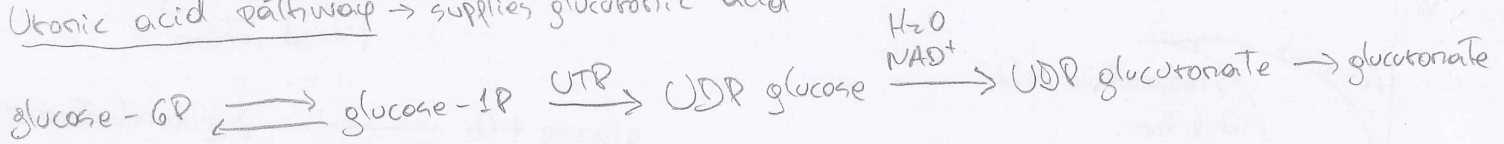 Uronic acid pathway → supplies glucuronic acid
H₂O
NAD⁺
glucose-6P ⇌ glucose-1P UTP → UDP glucose → UDP glucuronate → glucuronate